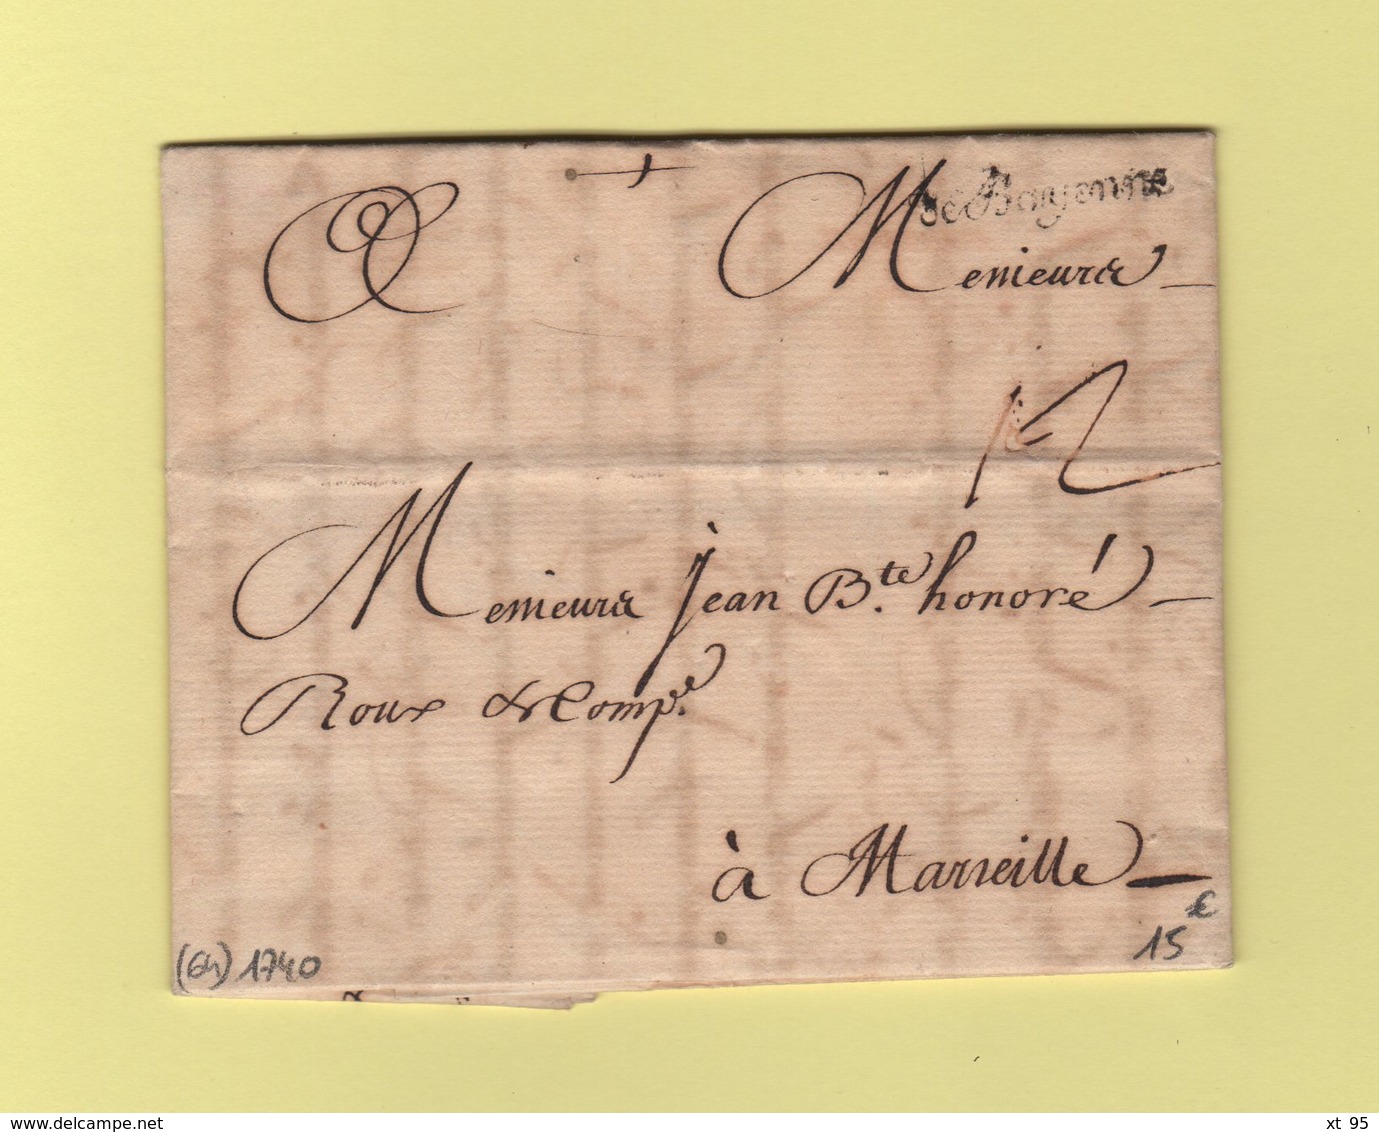 de Bayenne
A Messieurs
12
Messieurs Jean B.te honoré
Roux & Comp.e
à Marseille
€
15
(64) 1740
www.delcampe.net
xt 95